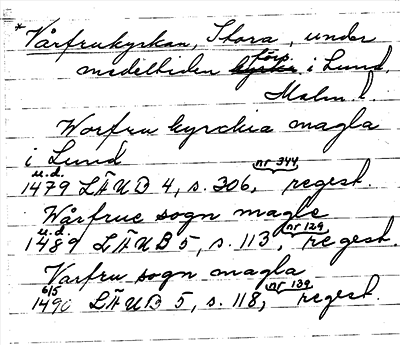 *Vårfrukyrkan, Stora, under
medeltiden kyrka förs. i Lund,
Malm l
Worfru kyrchia magla
i Lund
u.d. 1479 LÄUB 4, s. 306, nr 344, regest.
Wårfrue sogn magle
u.d. 1489 LÄUB 5, s. 113, nr 129, regest.
Varfru sogn magla
6/5 1490 LÄUB 5, s. 118, nr 139, regest.